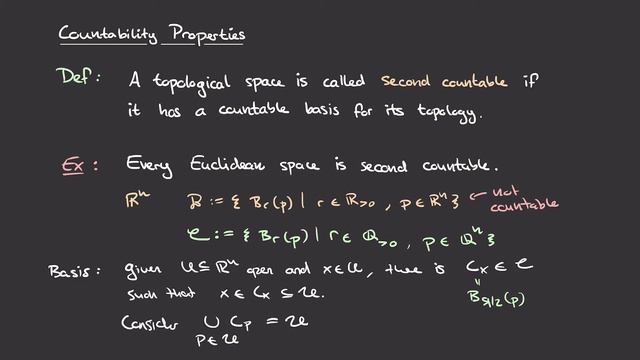 Countability Properties
Def: A topological space is called second countable if
it has a countable basis for its topology.
Ex: Every Euclidean space is second countable.
ℝⁿ B := { B_r(p) | r ∈ ℝ_{>0}, p ∈ ℝⁿ } ← not countable
C := { B_r(p) | r ∈ ℚ_{>0}, p ∈ ℚⁿ }
Basis: given U ⊆ ℝⁿ open and x ∈ U, there is C_x ∈ C
such that x ∈ C_x ⊆ U.
= B_{s/2}(p)
Consider ∪ C_p = U
p ∈ U